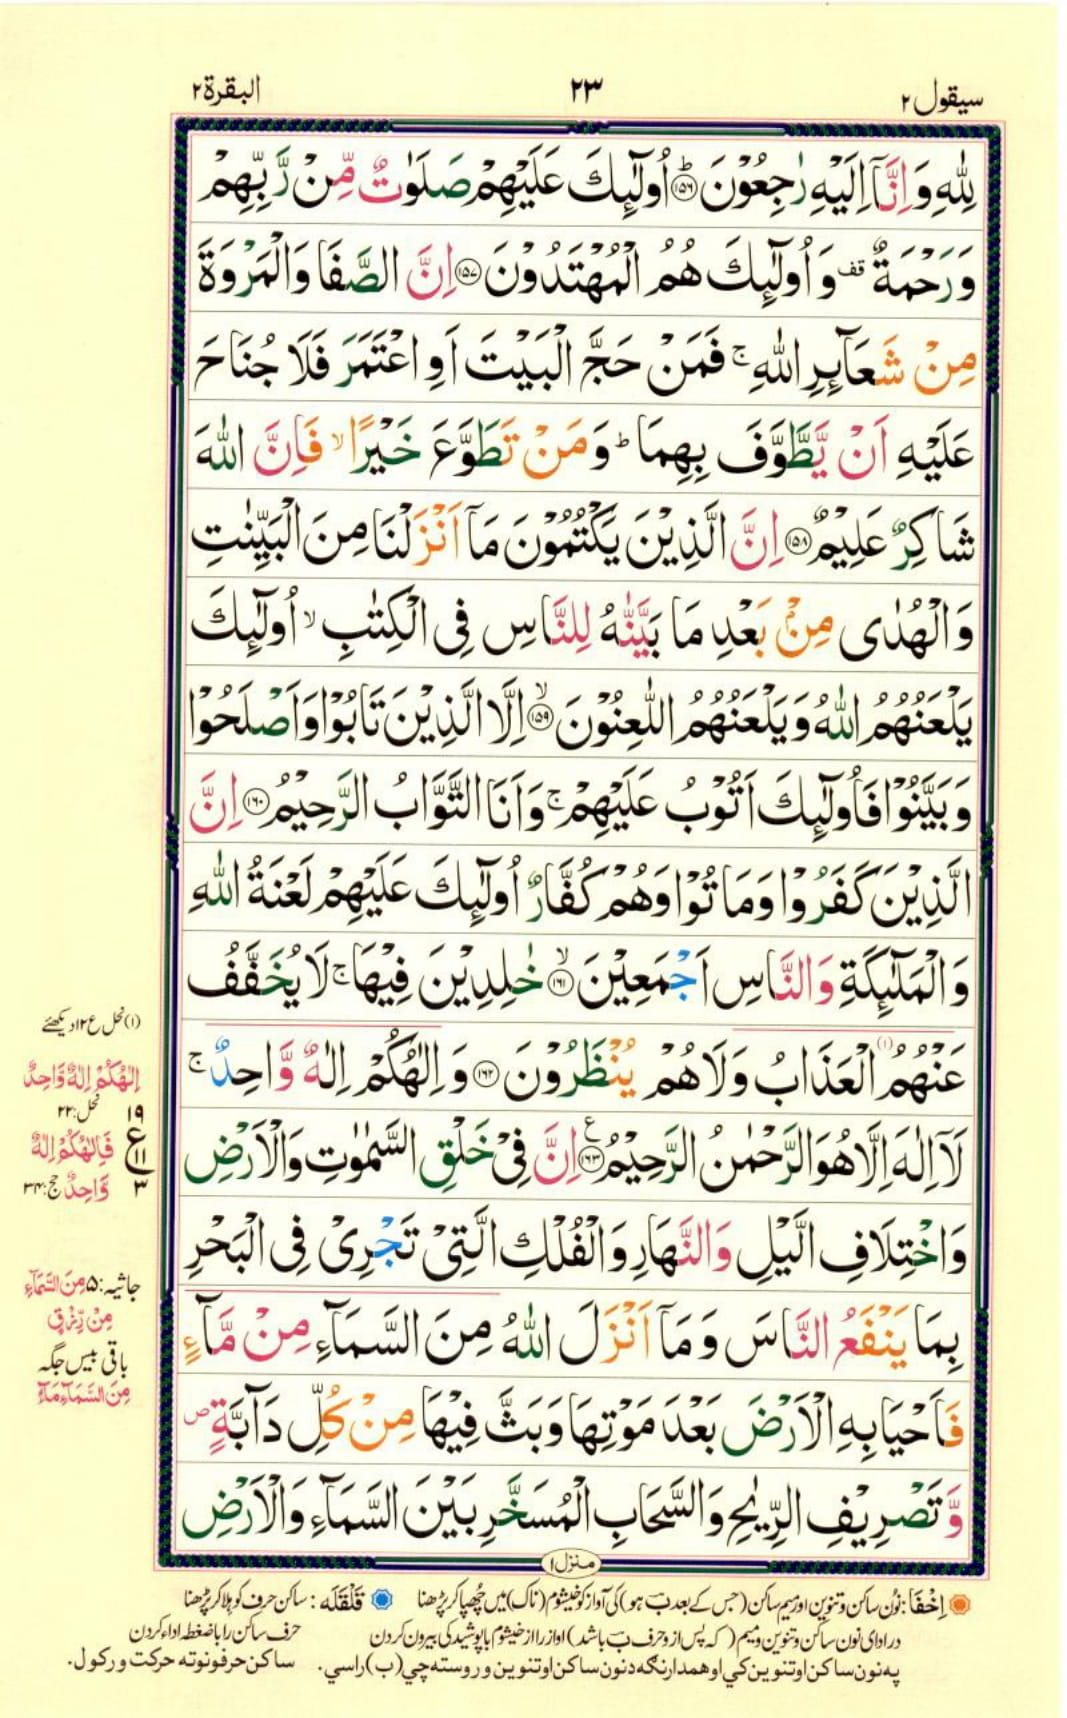 سيقول ٢
٢٣
البقرة ٢
لِلّٰهِ وَاِنَّاۤ اِلَيْهِ رٰجِعُوْنَ ؕ﴿۱۵۶﴾ اُولٰٓئِكَ عَلَيْهِمْ صَلَوٰتٌ مِّنْ رَّبِّهِمْ
وَرَحْمَةٌ قف وَاُولٰٓئِكَ هُمُ الْمُهْتَدُوْنَ ﴿۱۵۷﴾ اِنَّ الصَّفَا وَالْمَرْوَةَ
مِنْ شَعَآئِرِ اللّٰهِ ۚ فَمَنْ حَجَّ الْبَيْتَ اَوِ اعْتَمَرَ فَلَا جُنَاحَ
عَلَيْهِ اَنْ يَّطَّوَّفَ بِهِمَا ؕ وَمَنْ تَطَوَّعَ خَيْرًا ۙ فَاِنَّ اللّٰهَ
شَاكِرٌ عَلِيْمٌ ﴿۱۵۸﴾ اِنَّ الَّذِيْنَ يَكْتُمُوْنَ مَاۤ اَنْزَلْنَا مِنَ الْبَيِّنٰتِ
وَالْهُدٰى مِنْۢ بَعْدِ مَا بَيَّنّٰهُ لِلنَّاسِ فِى الْكِتٰبِ ۙ اُولٰٓئِكَ
يَلْعَنُهُمُ اللّٰهُ وَيَلْعَنُهُمُ اللّٰعِنُوْنَ ۙ﴿۱۵۹﴾ اِلَّا الَّذِيْنَ تَابُوْا وَاَصْلَحُوْا
وَبَيَّنُوْا فَاُولٰٓئِكَ اَتُوْبُ عَلَيْهِمْ ۚ وَاَنَا التَّوَّابُ الرَّحِيْمُ ﴿۱۶۰﴾ اِنَّ
الَّذِيْنَ كَفَرُوْا وَمَاتُوْا وَهُمْ كُفَّارٌ اُولٰٓئِكَ عَلَيْهِمْ لَعْنَةُ اللّٰهِ
وَالْمَلٰٓئِكَةِ وَالنَّاسِ اَجْمَعِيْنَ ۙ﴿۱۶۱﴾ خٰلِدِيْنَ فِيْهَا ۚ لَا يُخَفَّفُ
عَنْهُمُ (۱) الْعَذَابُ وَلَا هُمْ يُنْظَرُوْنَ ﴿۱۶۲﴾ وَاِلٰهُكُمْ اِلٰهٌ وَّاحِدٌ ۚ
لَاۤ اِلٰهَ اِلَّا هُوَ الرَّحْمٰنُ الرَّحِيْمُ ﴿۱۶۳﴾ ع اِنَّ فِىْ خَلْقِ السَّمٰوٰتِ وَالْاَرْضِ
وَاخْتِلَافِ الَّيْلِ وَالنَّهَارِ وَالْفُلْكِ الَّتِىْ تَجْرِىْ فِى الْبَحْرِ
بِمَا يَنْفَعُ النَّاسَ وَمَاۤ اَنْزَلَ اللّٰهُ مِنَ السَّمَآءِ مِنْ مَّآءٍ
فَاَحْيَا بِهِ الْاَرْضَ بَعْدَ مَوْتِهَا وَبَثَّ فِيْهَا مِنْ كُلِّ دَآبَّةٍ ص
وَّتَصْرِيْفِ الرِّيٰحِ وَالسَّحَابِ الْمُسَخَّرِ بَيْنَ السَّمَآءِ وَالْاَرْضِ
منزل ١
(۱) نحل ع ۱۲ دیکھئے
اِلٰهُكُمْ اِلٰهٌ وَّاحِدٌ
نحل: ۲۲
۱۹
ع ۱۱
۳
فَاِلٰهُكُمْ اِلٰهٌ
وَّاحِدٌ حج: ۳۴
جاثیہ: ۵ مِنَ السَّمَآءِ
مِنْ رِّزْقٍ
باقی بیس جگہ
مِنَ السَّمَآءِ مَآءً
اِخفَا: نُون ساکن و تنوین اور میم ساکن (جس کے بعد بَ ہو) کی آواز کو خیشوم (ناک) میں چُھپا کر پڑھنا قَلْقَلَه: ساکن حرف کو ہلا کر پڑھنا
در ادای نون ساکن و تنوین و میم (که پس از و حرف بَ باشد) اواز را از خیشوم با پوشیدگی بیرون کردن حرف ساکن را با ضغطه ادا کردن
په نون ساکن او تنوین کي او همدارنګه د نون ساکن او تنوین و روسته چي (ب) راسي. ساکن حرفونو ته حرکت ورکول.